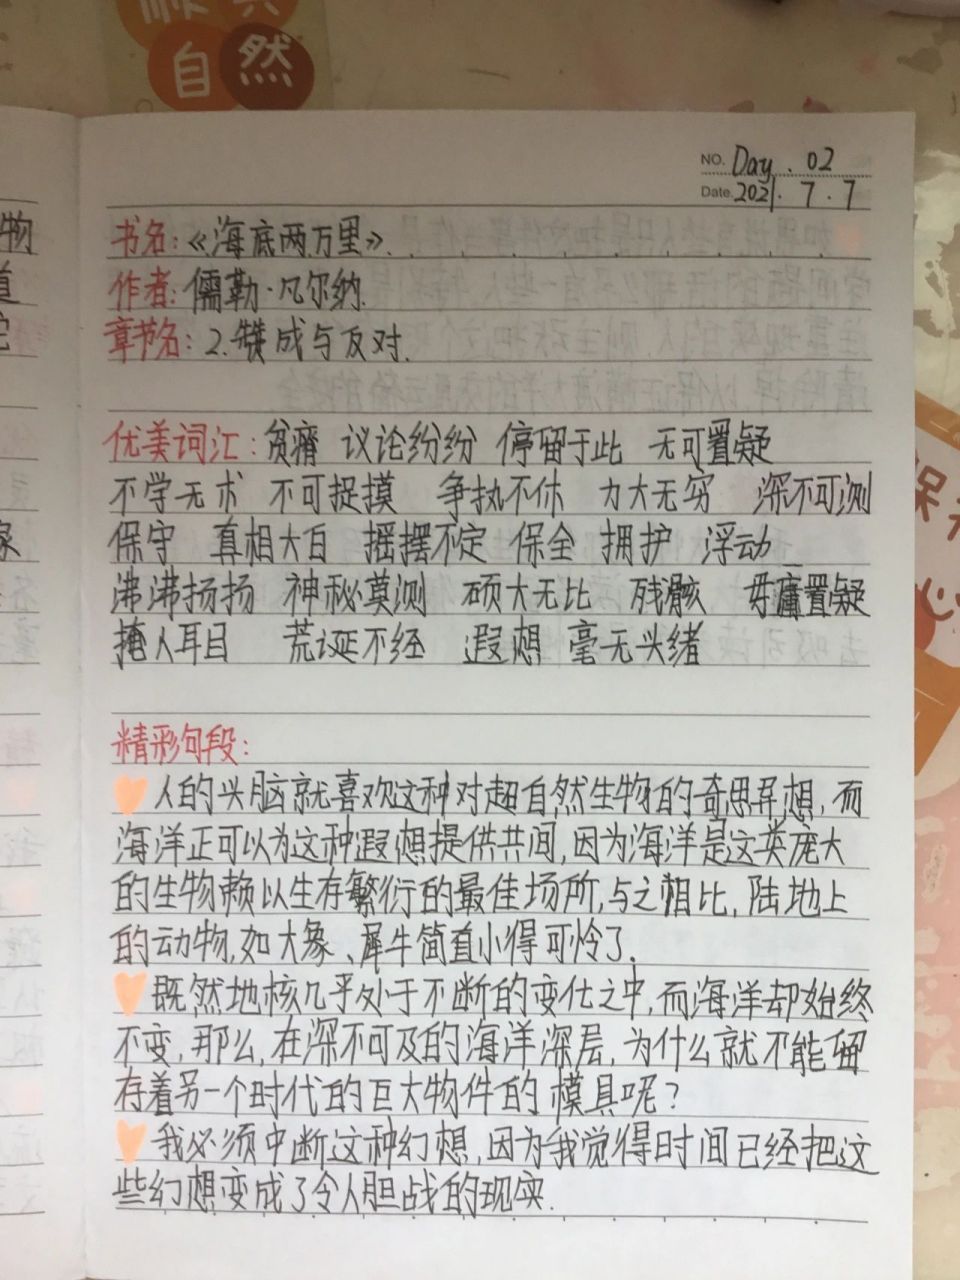 自然
NO. Day. 02
Date. 2021. 7. 7
书名:《海底两万里》.
作者:儒勒·凡尔纳.
章节名:2.赞成与反对.
优美词汇:贫瘠 议论纷纷 停留于此 无可置疑
不学无术 不可捉摸 争执不休 力大无穷 深不可测
保守 真相大白 摇摆不定 保全 拥护 浮动
沸沸扬扬 神秘莫测 硕大无比 残骸 毋庸置疑
掩人耳目 荒诞不经 遐想 毫无头绪
精彩句段:
人的头脑就喜欢这种对超自然生物的奇思异想,而
海洋正可以为这种遐想提供共间,因为海洋是这类庞大
的生物赖以生存繁衍的最佳场所,与之相比,陆地上
的动物,如大象、犀牛简直小得可怜了.
既然地核几乎处于不断的变化之中,而海洋却始终
不变,那么,在深不可及的海洋深层,为什么就不能留
存着另一个时代的巨大物件的模具呢?
我必须中断这种幻想,因为我觉得时间已经把这
些幻想变成了令人胆战的现实.